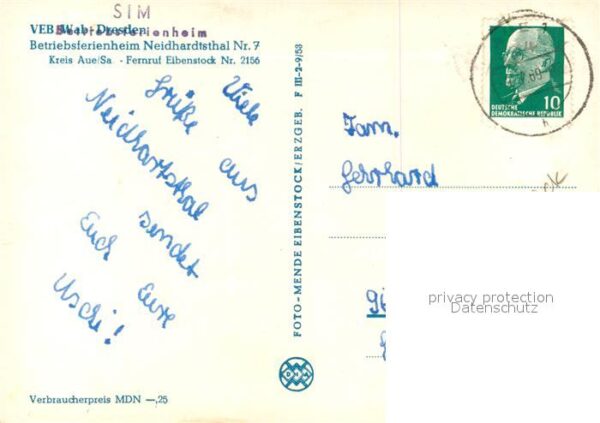 SIM
VEB Wab-Dresden
Betriebsferienheim
Betriebsferienheim Neidhardtsthal Nr. 7
Kreis Aue/Sa. - Fernruf Eibenstock Nr. 2156
Viele
Grüße aus
Neidhartsthal
sendet
Euch Eure
Uschi!
Verbraucherpreis MDN —,25
FOTO-MENDE EIBENSTOCK/ERZGEB. F III-2-9/53
DEUTSCHE 10
DEMOKRATISCHE REPUBLIK
Fam.
Gerhard
privacy protection
Datenschutz